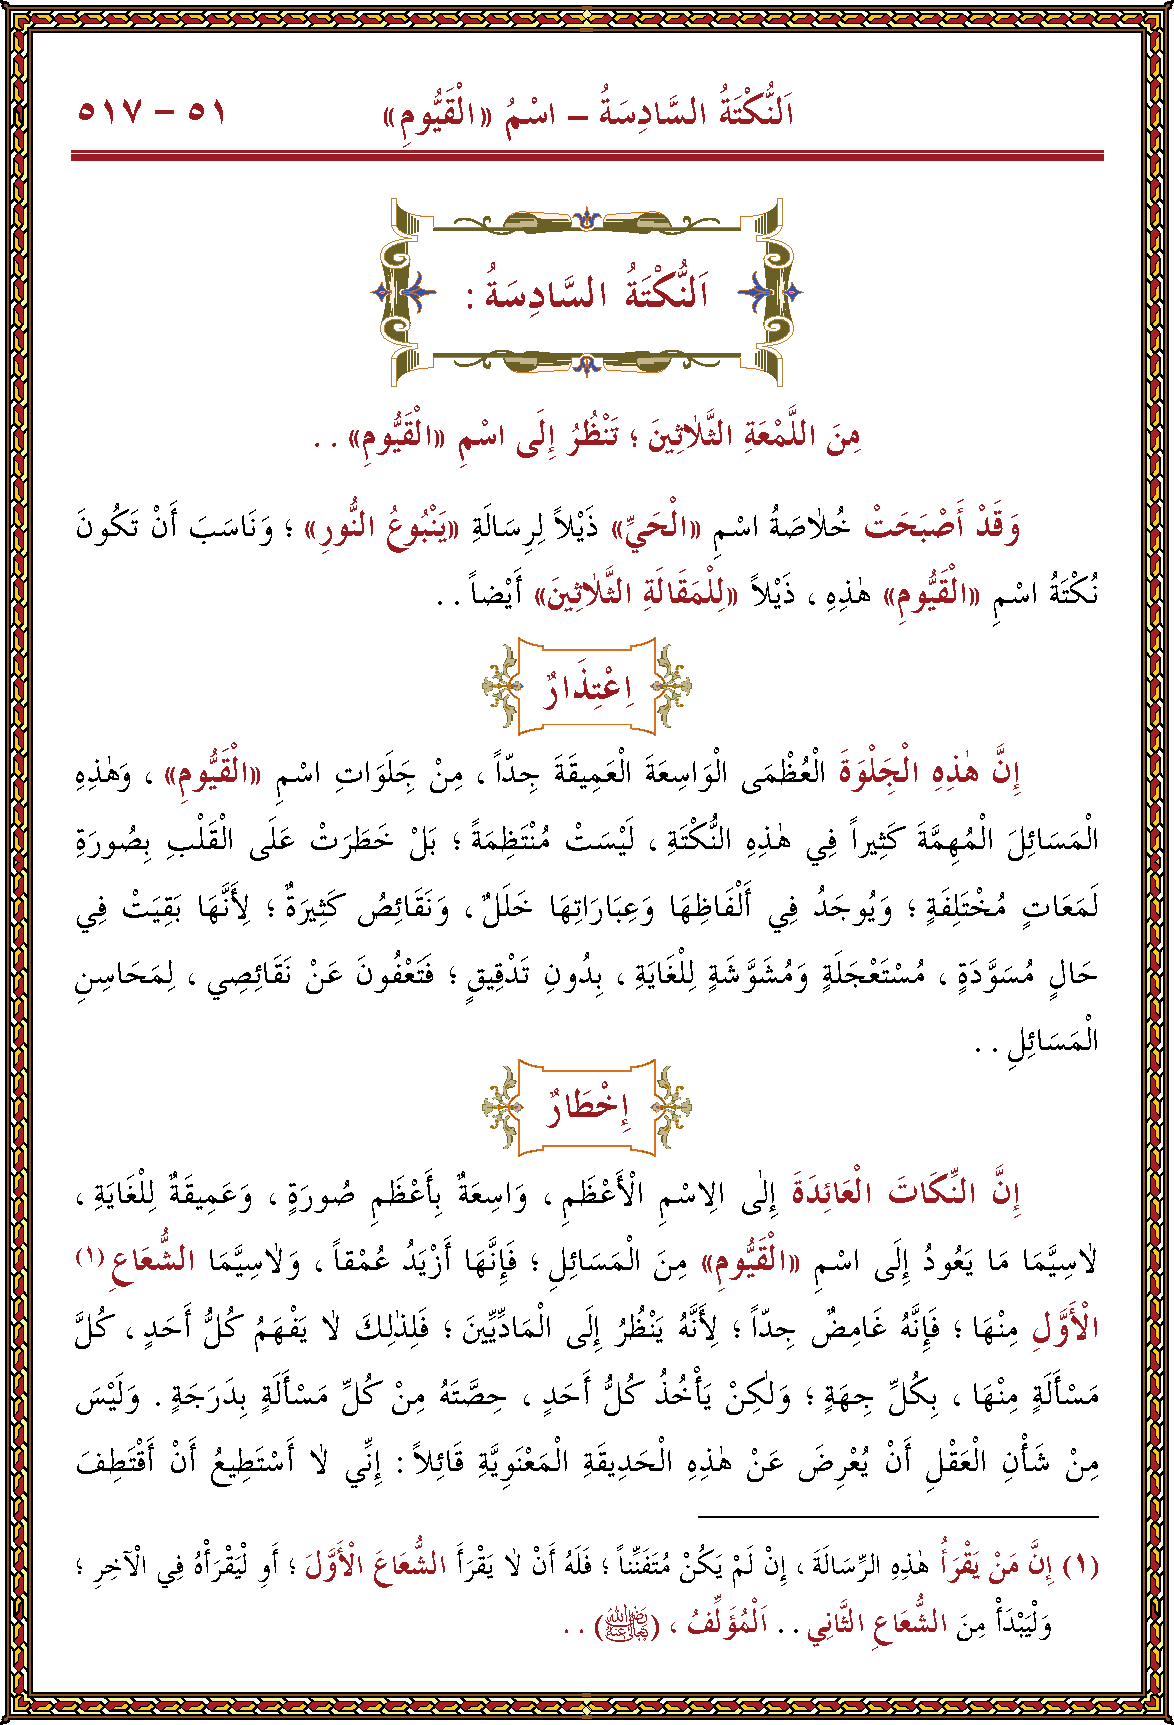 اَلنُّكْتَةُ السَّادِسَةُ – اسْمُ «الْقَيُّومِ» ٥١ – ٥١٧
اَلنُّكْتَةُ السَّادِسَةُ :
مِنَ اللَّمْعَةِ الثَّلاٰثِينَ ؛ تَنْظُرُ إِلَى اسْمِ «الْقَيُّومِ» . .
وَقَدْ أَصْبَحَتْ خُلاٰصَةُ اسْمِ «الْحَيِّ» ذَيْلاً لِرِسَالَةِ «يَنْبُوعُ النُّورِ» ؛ وَنَاسَبَ أَنْ تَكُونَ
نُكْتَةُ اسْمِ «الْقَيُّومِ» هٰذِهِ ، ذَيْلاً «لِلْمَقَالَةِ الثَّلاٰثِينَ» أَيْضاً . .
اِعْتِذَارٌ
إِنَّ هٰذِهِ الْجَلْوَةَ الْعُظْمَى الْوَاسِعَةَ الْعَمِيقَةَ جِدّاً ، مِنْ جَلَوَاتِ اسْمِ «الْقَيُّومِ» ، وَهٰذِهِ
الْمَسَائِلَ الْمُهِمَّةَ كَثِيراً فِي هٰذِهِ النُّكْتَةِ ، لَيْسَتْ مُنْتَظِمَةً ؛ بَلْ خَطَرَتْ عَلَى الْقَلْبِ بِصُورَةِ
لَمَعَاتٍ مُخْتَلِفَةٍ ؛ وَيُوجَدُ فِي أَلْفَاظِهَا وَعِبَارَاتِهَا خَلَلٌ ، وَنَقَائِصُ كَثِيرَةٌ ؛ لِأَنَّهَا بَقِيَتْ فِي
حَالٍ مُسَوَّدَةٍ ، مُسْتَعْجَلَةٍ وَمُشَوَّشَةٍ لِلْغَايَةِ ، بِدُونِ تَدْقِيقٍ ؛ فَتَعْفُونَ عَنْ نَقَائِصِي ، لِمَحَاسِنِ
الْمَسَائِلِ . .
إِخْطَارٌ
إِنَّ النِّكَاتَ الْعَائِدَةَ إِلٰى الِاسْمِ الْأَعْظَمِ ، وَاسِعَةٌ بِأَعْظَمِ صُورَةٍ ، وَعَمِيقَةٌ لِلْغَايَةِ ،
لاٰسِيَّمَا مَا يَعُودُ إِلَى اسْمِ «الْقَيُّومِ» مِنَ الْمَسَائِلِ ؛ فَإِنَّهَا أَزْيَدُ عُمْقاً ، وَلاٰسِيَّمَا الشُّعَاعِ (١)
الْأَوَّلِ مِنْهَا ؛ فَإِنَّهُ غَامِضٌ جِدّاً ؛ لِأَنَّهُ يَنْظُرُ إِلَى الْمَادِّيِّينَ ؛ فَلِذٰلِكَ لاٰ يَفْهَمُ كُلُّ أَحَدٍ ، كُلَّ
مَسْأَلَةٍ مِنْهَا ، بِكُلِّ جِهَةٍ ؛ وَلٰكِنْ يَأْخُذُ كُلُّ أَحَدٍ ، حِصَّتَهُ مِنْ كُلِّ مَسْأَلَةٍ بِدَرَجَةٍ . وَلَيْسَ
مِنْ شَأْنِ الْعَقْلِ أَنْ يُعْرِضَ عَنْ هٰذِهِ الْحَدِيقَةِ الْمَعْنَوِيَّةِ قَائِلاً : إِنِّي لاٰ أَسْتَطِيعُ أَنْ أَقْتَطِفَ
(١) إِنَّ مَنْ يَقْرَأُ هٰذِهِ الرِّسَالَةَ ، إِنْ لَمْ يَكُنْ مُتَفَنِّناً ؛ فَلَهُ أَنْ لاٰ يَقْرَأَ الشُّعَاعَ الْأَوَّلَ ؛ أَوِ لْيَقْرَأْهُ فِي الْآخِرِ ؛
وَلْيَبْدَأْ مِنَ الشُّعَاعِ الثَّانِي . . اَلْمُؤَلِّفُ ، (رَضِيَ اللهُ تَعَالَى عَنْهُ) . .